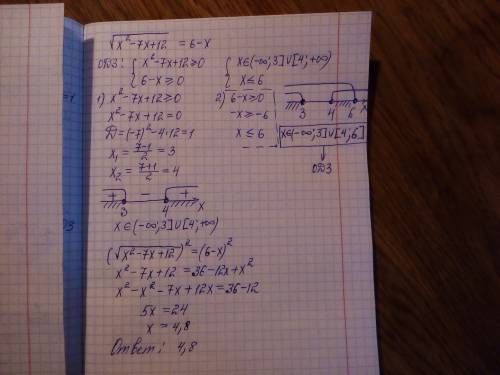 √x²-7x+12 = 6-x
ОДЗ: { x²-7x+12≥0
6-x≥0
{ x∈(-∞;3]∪[4;+∞)
x≤6
1) x²-7x+12≥0
x²-7x+12=0
Д=(-7)²-4·12=1
x₁=7-1/2=3
x₂=7+1/2=4
2) 6-x≥0
-x≥-6
x≤6
3 4 6 x
x∈(-∞;3]∪[4;6]
ОДЗ
+ - +
3 4 x
x∈(-∞;3]∪[4;+∞)
(√x²-7x+12)²=(6-x)²
x²-7x+12=36-12x+x²
x²-x²-7x+12x=36-12
5x=24
x=4,8
Ответ: 4,8